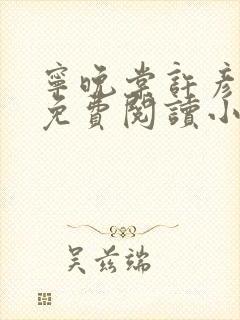 寧晚棠許彥
免費閱讀小
吴兹端